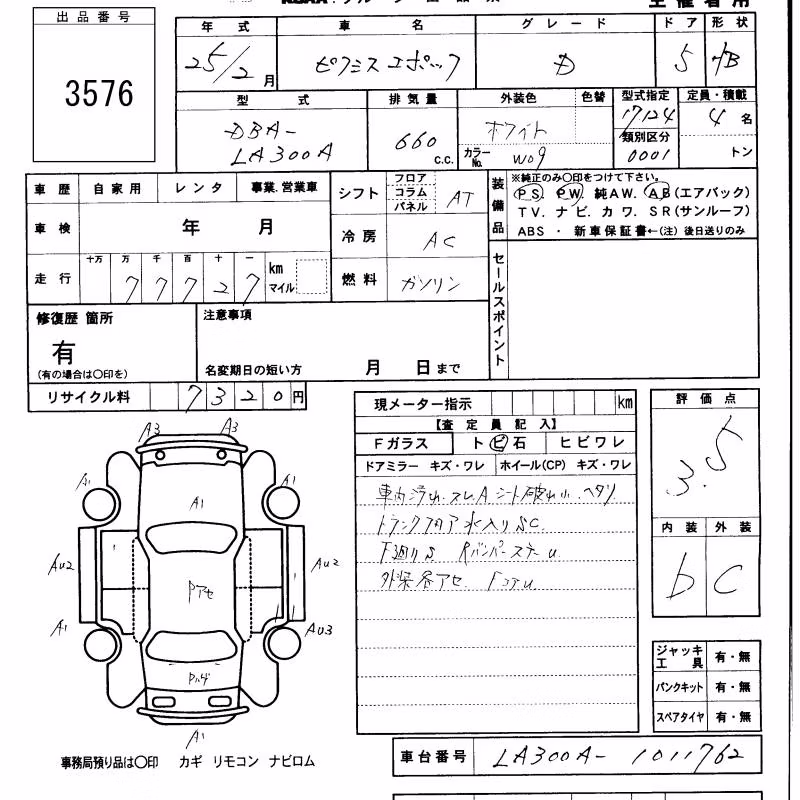 出品番号
3576
年式 車名 グレード ドア 形状
25/2月 ピクシス エポック D 5 HB
型式 排気量 外装色 色替 型式指定 定員・積載
DBA-
LA300A
660 c.c.
ホワイト
カラーNo. W09
17124
類別区分
0001
4 名
トン
車歴 自家用 レンタ 事業.営業車
車検 年 月
走行 十万 万 千 百 十 一
77727 km マイル
シフト フロア コラム パネル AT
冷房 AC
燃料 ガソリン
装備品
※純正のみ〇印をつけて下さい。
PS. PW. 純AW. AB(エアバック)
TV. ナビ. カワ. SR(サンルーフ)
ABS ・ 新車保証書←(注) 後日送りのみ
セールスポイント
修復歴 箇所
有
(有の場合は〇印を)
注意事項
名変期日の短い方 月 日まで
リサイクル料 7320円
現メーター指示 km
【査定員記入】
Fガラス ト ビ 石 ヒビワレ
ドアミラー キズ・ワレ ホイール(CP) キズ・ワレ
車内汚れ.スレ.A シート破れ ヘタリ
トランクフロア 水入り SC.
F廻りS Rバンパーステーu
外装 アセ. Fコアu
評価点
3.5
内装 外装
b C
ジャッキ工具 有・無
パンクキット 有・無
スペアタイヤ 有・無
車台番号 LA300A-1011762
A3 A3
A1 A1
A1
Au2 Au2
Pアセ
A1 Au3
A1
事務局預り品は〇印 カギ リモコン ナビロム